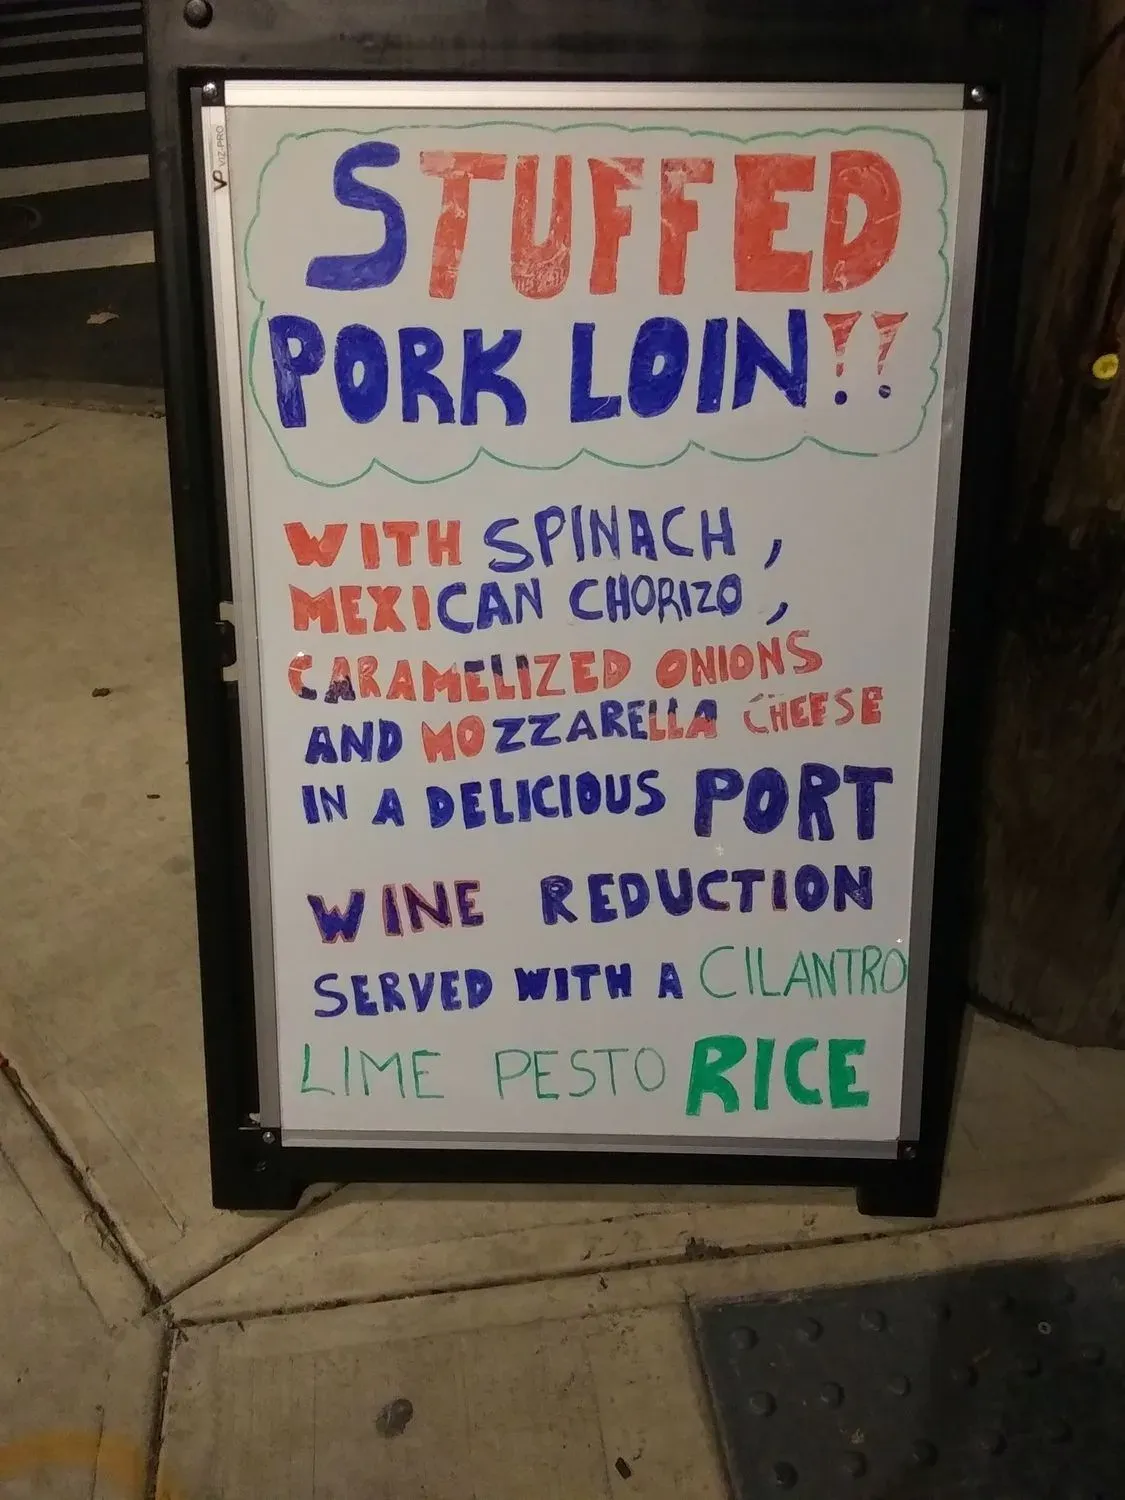 STUFFED
PORK LOIN!!
WITH SPINACH,
MEXICAN CHORIZO,
CARAMELIZED ONIONS
AND MOZZARELLA CHEESE
IN A DELICIOUS PORT
WINE REDUCTION
SERVED WITH A CILANTRO
LIME PESTO RICE
VP VIZ-PRO